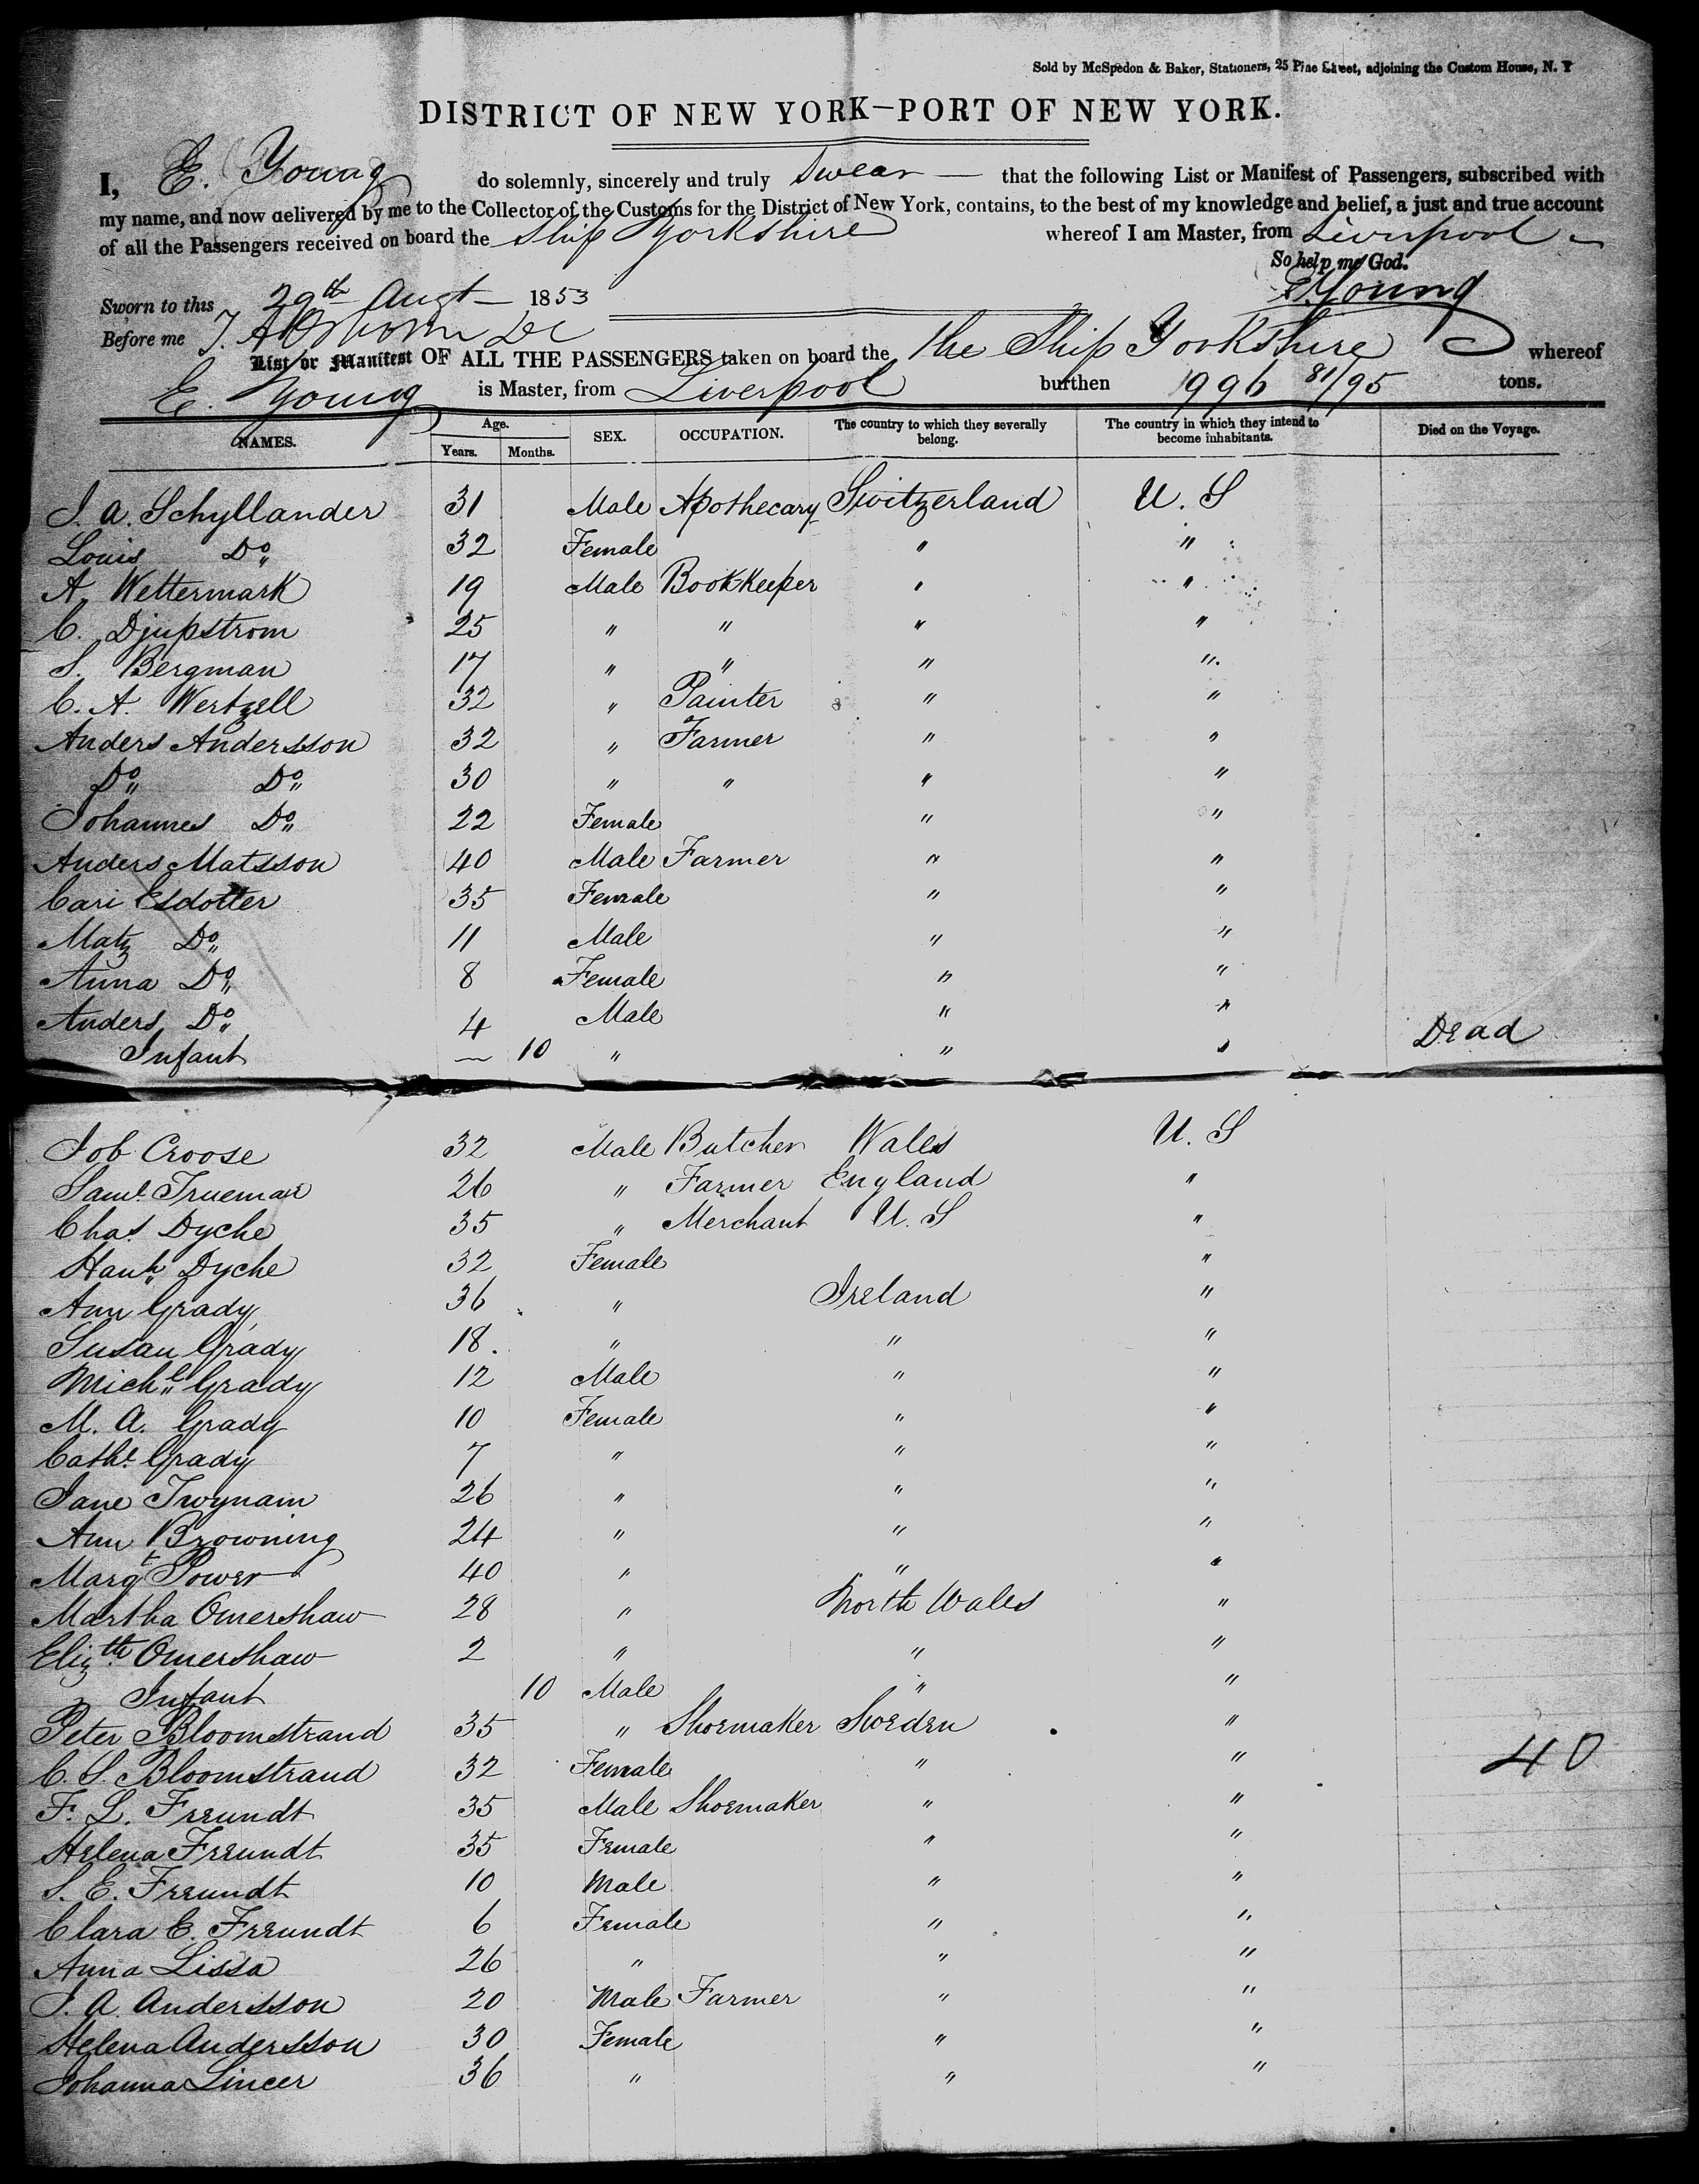 Sold by McSpedon & Baker, Stationers, 25 Pine Street, adjoining the Custom House, N. Y
DISTRICT OF NEW YORK—PORT OF NEW YORK.
I, E. Young do solemnly, sincerely and truly Swear — that the following List or Manifest of Passengers, subscribed with
my name, and now delivered by me to the Collector of the Customs for the District of New York, contains, to the best of my knowledge and belief, a just and true account
of all the Passengers received on board the Ship Yorkshire whereof I am Master, from Liverpool
So help me God.
Sworn to this 29th Augt 1853 E Young
Before me
List or Manifest OF ALL THE PASSENGERS taken on board the the Ship Yorkshire whereof
E. Young is Master, from Liverpool burthen 1996 81/95 tons.
NAMES. Age. Years. Months. SEX. OCCUPATION. The country to which they severally belong. The country in which they intend to become inhabitants. Died on the Voyage.
J. A. Schyllander 31 Male Apothecary Switzerland U. S
Louis Do 32 Female " "
A. Wettermark 19 Male Bookkeeper " "
C. Djupstrom 25 " " " "
S. Bergman 17 " " " "
C. A. Wertzell 32 " Painter " "
Anders Andersson 32 " Farmer " "
Do Do 30 " " " "
Johannes Do 22 Female " "
Anders Matsson 40 Male Farmer " "
Cari Esdotter 35 Female " "
Matz Do 11 Male " "
Anna Do 8 Female " "
Anders Do 4 Male " "
Infant — 10 " " " Dead
Job Croose 32 Male Butcher Wales U. S
Saml Trueman 26 " Farmer England "
Chas Dyche 35 " Merchant U. S "
Hanh Dyche 32 Female "
Ann Grady 36 " Ireland "
Susan Grady 18. " " "
Michl Grady 12 Male " "
M. A. Grady 10 Female " "
Cathe Grady 7 " " "
Jane Twynam 26 " " "
Ann Browning 24 " " "
Margt Power 40 " " "
Martha Omershaw 28 " North Wales "
Elizth Omershaw 2 " " "
Infant 10 Male " "
Peter Bloomstrand 35 " Shoemaker Sweden "
C. S. Bloomstrand 32 Female " " 40
F. L. Freundt 35 Male Shoemaker " "
Helena Freundt 35 Female " "
S. E. Freundt 10 Male " "
Clara C. Freundt 6 Female " "
Anna Lissa 26 " " "
J. A. Andersson 20 Male Farmer " "
Helena Andersson 30 Female " "
Johanna Lincer 36 " " "